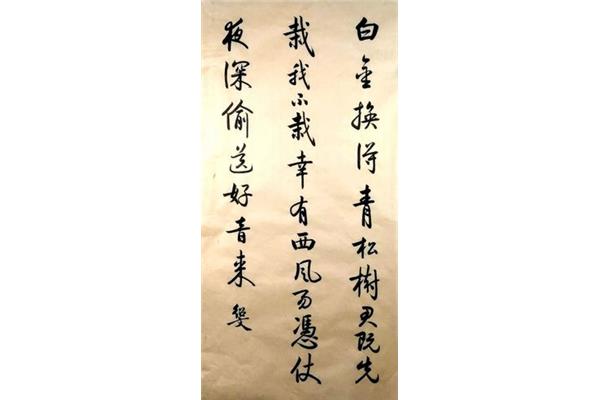 白金换得青松樹君既先
栽我不栽幸有西风易憑仗
夜深偷送好音来